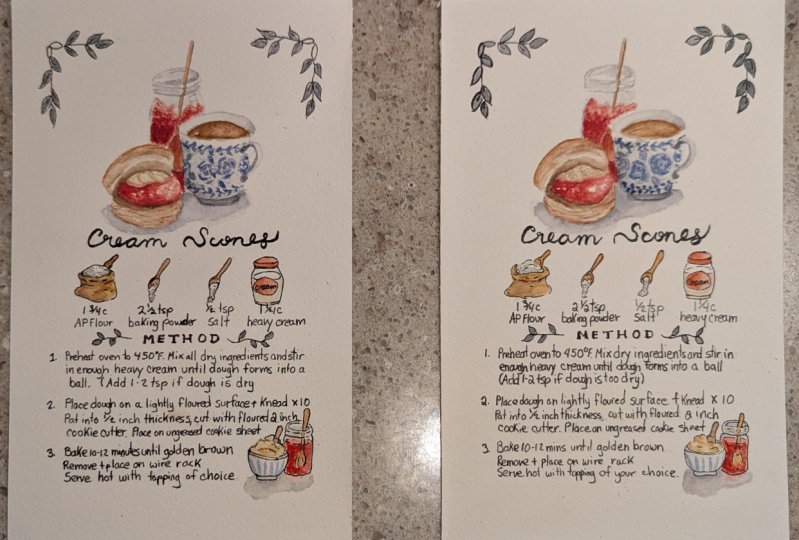 Cream Scones
cream
1 3/4c 2 1/2 tsp 1/2 tsp 1 1/4c
AP Flour baking powder Salt heavy cream
METHOD
1. Preheat oven to 450°F. Mix all dry ingredients and stir
in enough heavy cream until dough forms into a
ball. (Add 1-2 tsp if dough is dry
2. Place dough on a lightly floured surface + Knead x10
Pat into 1/2 inch thickness, cut with floured 2 inch
cookie cutter. Place on ungreased cookie sheet
3. Bake 10-12 minutes until golden brown
Remove + place on wire rack
Serve hot with topping of choice
Cream Scones
cream
1 3/4c 2 1/2 tsp 1/2 tsp 1 1/4c
AP Flour baking powder Salt heavy cream
METHOD
1. Preheat oven to 450°F. Mix dry ingredients and stir in
enough heavy cream until dough forms into a ball
(Add 1-2 tsp if dough is too dry)
2. Place dough on lightly floured surface + Knead x10
Pat into 1/2 inch thickness, cut with floured inch
cookie cutter. Place on ungreased cookie sheet
3. Bake 10-12 mins until golden brown
Remove + place on wire rack
Serve hot with topping of your choice.